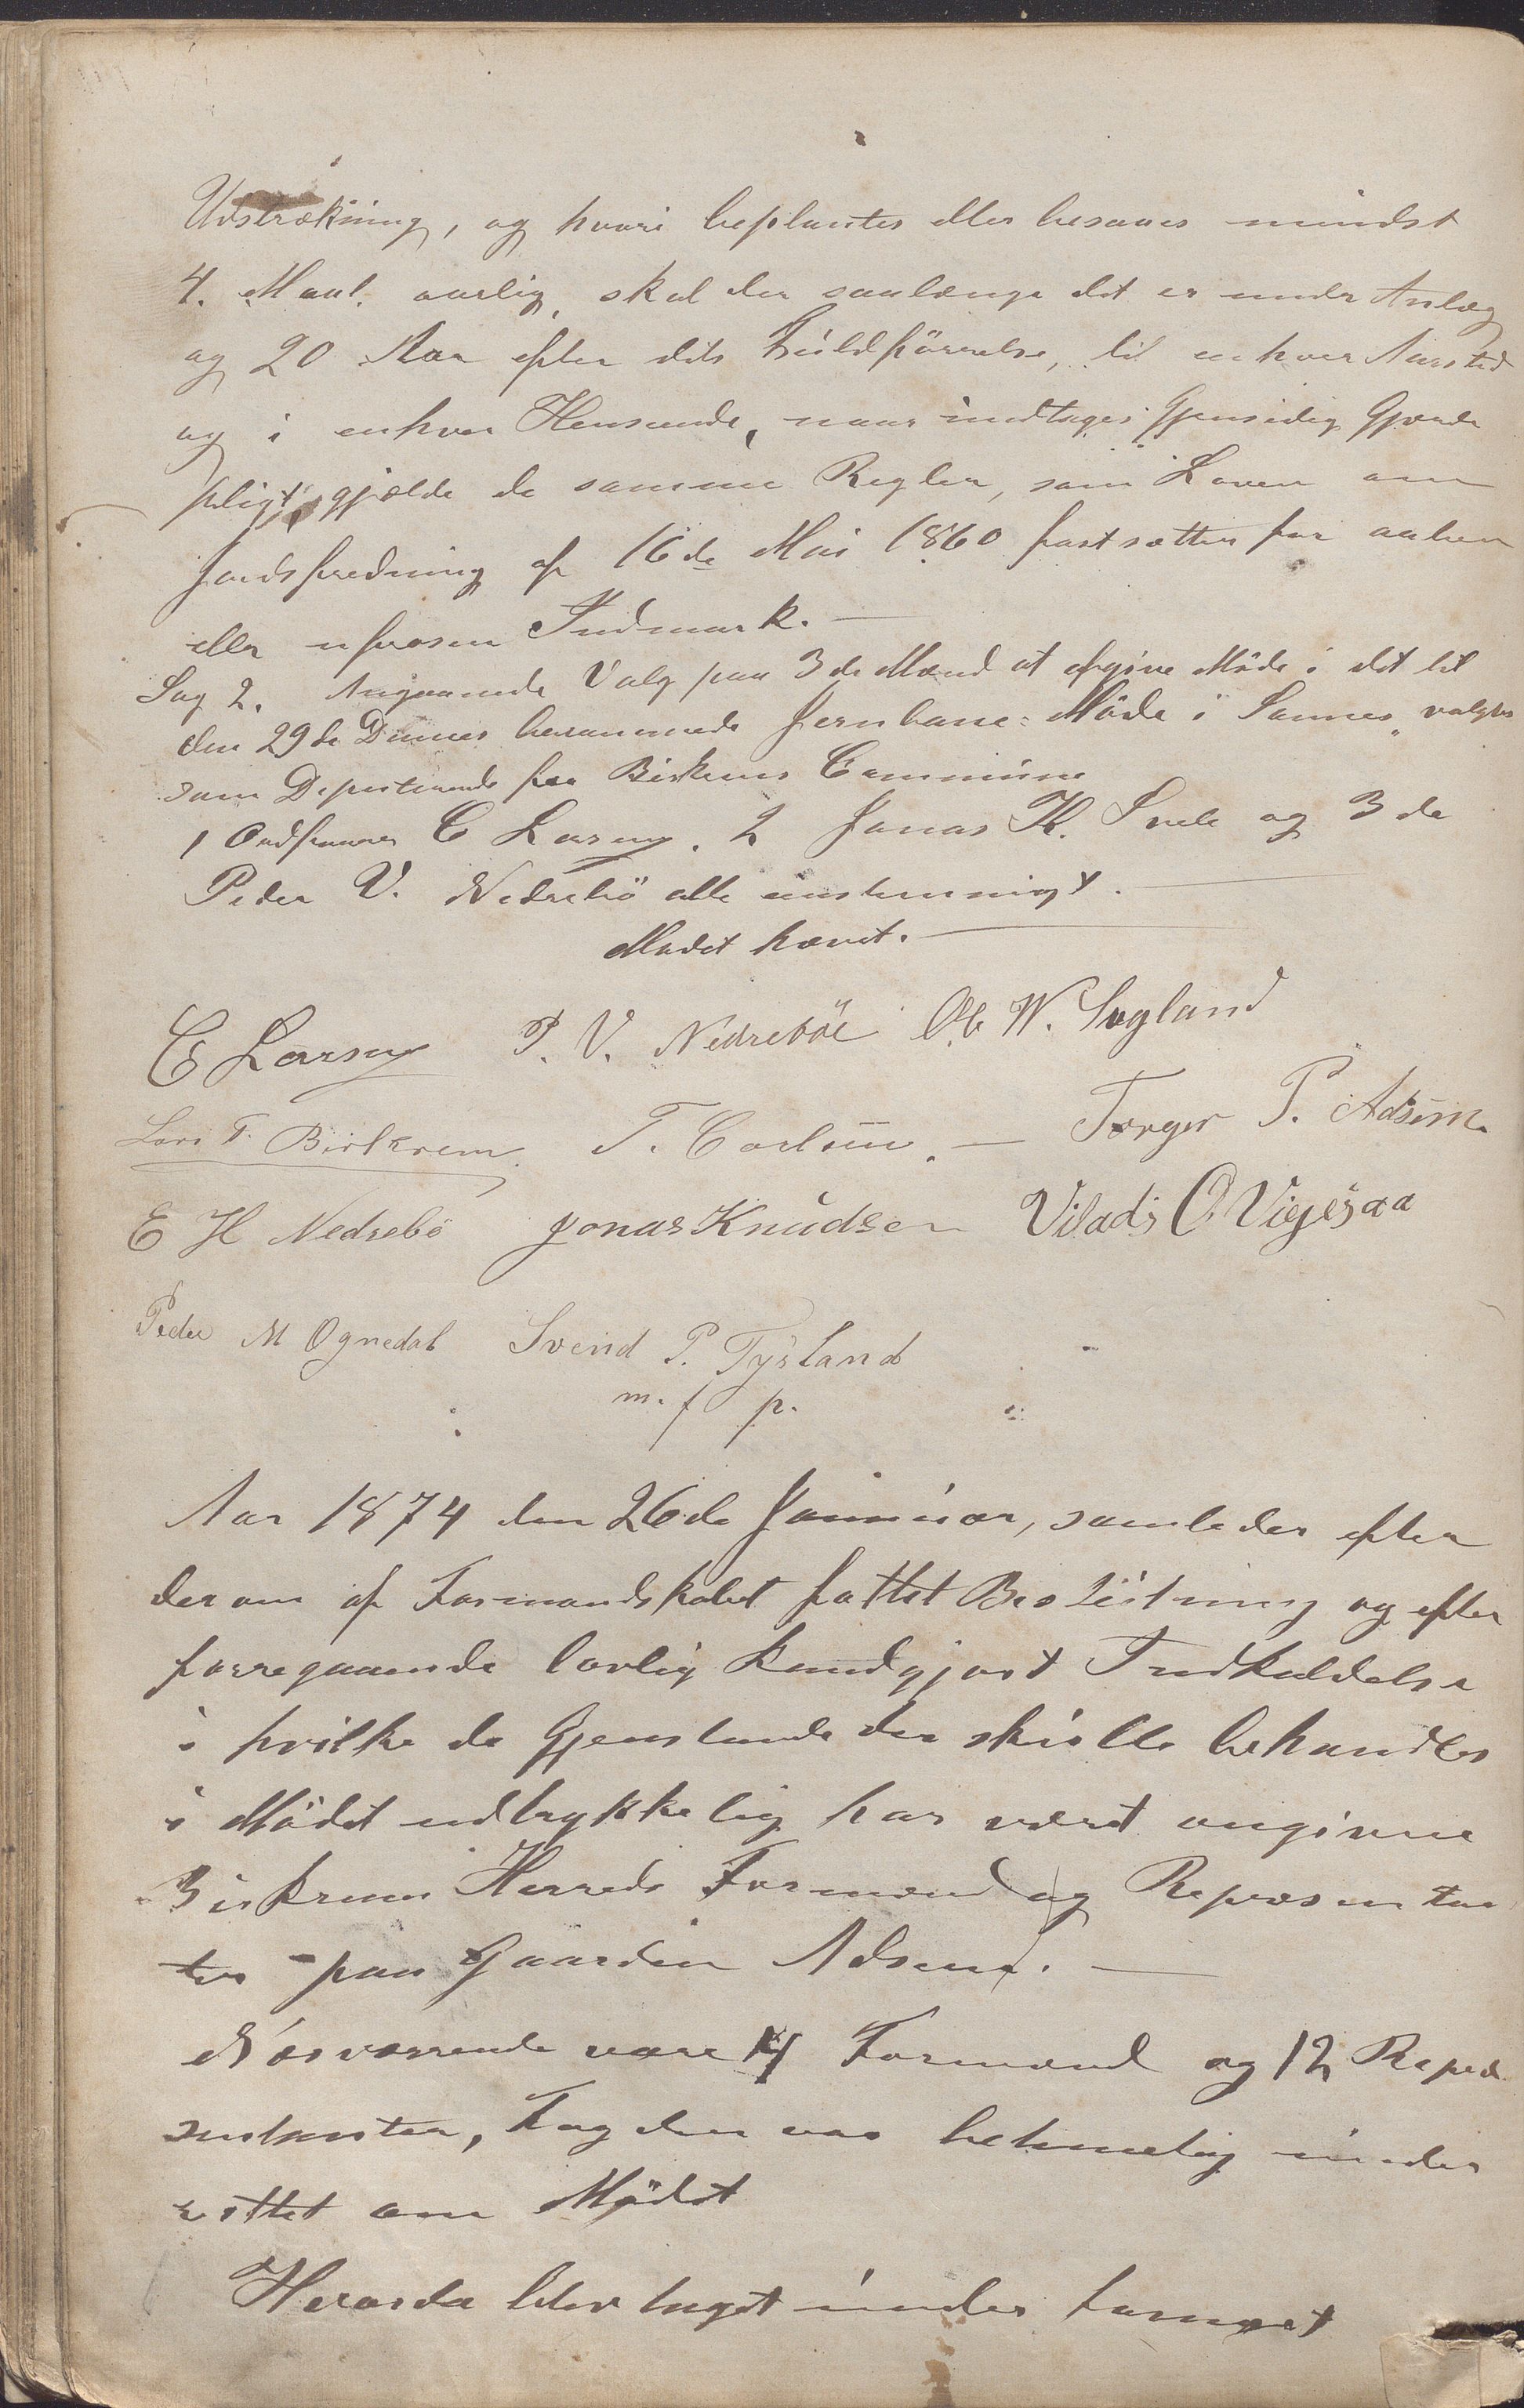 Udstrækning, og hvori beplantes eller besaaes mindst
4. Maal. aarlig, skal der saalænge det er under Anlæg
og 20 Aar efter dets Fuldførelse, til enhver Aarstid
og i enhver Henseende, naar undtages Gjensidig Gjærde
pligt, gjælde de samme Regler, som Loven om
Jordsfredning af 16de Mai 1860 fastsætter for aaben
eller ufrosen Indmark. —
Sag 2. Angaaende Valg paa 3de Mænd at afgive Møde i det til
den 29de Dennes berammede Jernbane-Møde i Sannes, valgtes
som Deputerende fra Birkrems Commune
1 Ordfører C Larsen. 2 Jonas K. Svele og 3de
Peder V. Nedrebö alle eenstemmigt. —
Mødet hævet. —
C Larsen P. V. Nedreböe Ol. W. Sogland
Lars T. Birkrem. T. Carlsen. — Torger P. Adsem.
E H Nedrebö Jonas Knudsen Vilads O Vigesaa
Peder M Ognedal Svend P. Tysland
m. f p.
Aar 1874 den 26de Januar, samledes efter
derom af Formandskabet fattet Beslutning og efter
forregaaende lovlig kundgjort Indkaldelse
i hvilke de Gjenstande der skulle behandles
i Mödet udtrykkelig har været angivne
Birkrems Herreds Formænd og Repræsentan
ter paa Gaarden Adsem. —
Nærværende vare 4 Formænd og 12 Repræ
sentanter, Fogden var betimelig under
rettet om Mödet
Herefter blev taget under